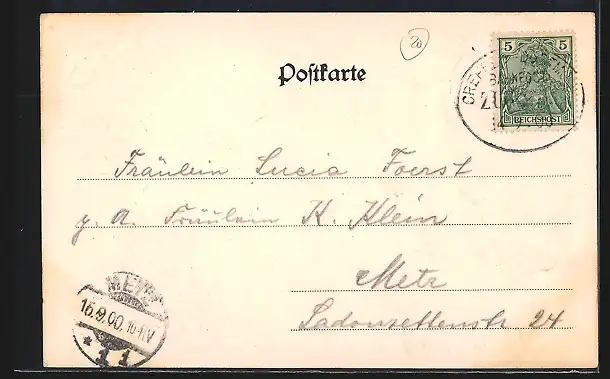 20
Postkarte
5 5
REICHSPOST
CREFE
BAHNPOST
ZUG
14 9 00
Fräulein Lucia Foerst
z. A. Fräulein K. Klein
Metz
Ladonzettenstr 24
METZ
15.9.00. 10-11V
* 11